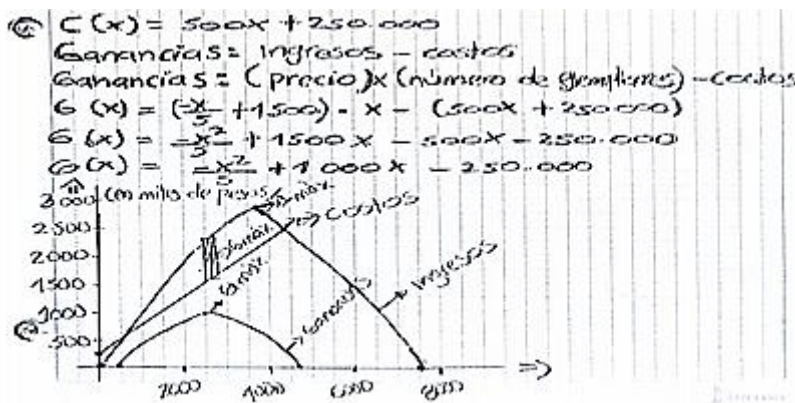 C(x) = 500x + 250.000
Ganancias = Ingresos - costos
Ganancias = (precio) x (número de ejemplares) - costos
G(x) = (-x/5 + 1500) · x - (500x + 250000)
G(x) = -x²/5 + 1500x - 500x - 250.000
G(x) = -x²/5 + 1000x - 250.000
3000 (en miles de pesos)
Costos
2500
2000
1500
Ingresos
1000
Ganancias
500
2000 4000 6000 8000